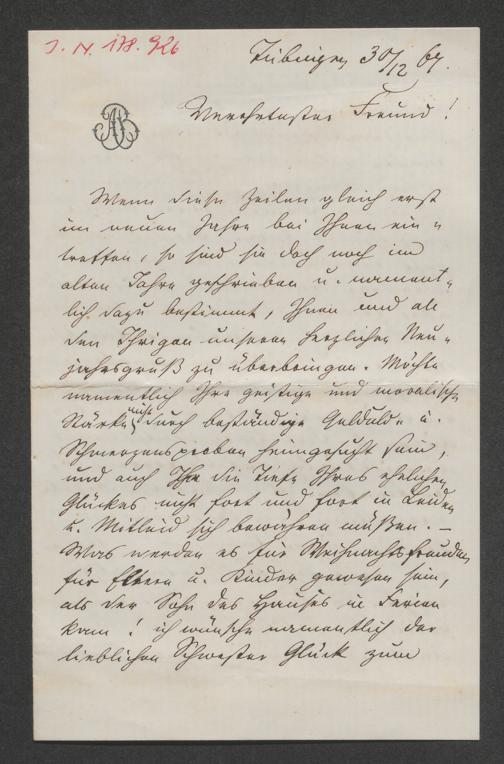 J. N. 178.926
Tübingen 30/12 67.
AB
Verehrtester Freund!
Wenn diese Zeilen gleich erst
im neuen Jahre bei Ihnen ein-
treffen, so sind sie doch noch im
alten Jahre geschrieben u. nament-
lich dazu bestimmt, Ihnen und al
den Ihrigen unseren herzlichen Neu-
jahrsgruß zu überbringen. Möchte
namentlich Ihre geistige und moralische
Stärke nicht durch beständige Geduld- u.
Schmerzensproben heimgesucht sein,
und auch die Tiefe Ihres ehelichen
Glückes nicht fort und fort in Leiden
u. Mitleid sich bewähren müßen. –
Was werden es für Weihnachtsfreuden
für Eltern u. Kinder gewesen sein,
als der Sohn des Hauses in Ferien
kam! ich wünsche namentlich der
lieblichen Schwester Glück zum